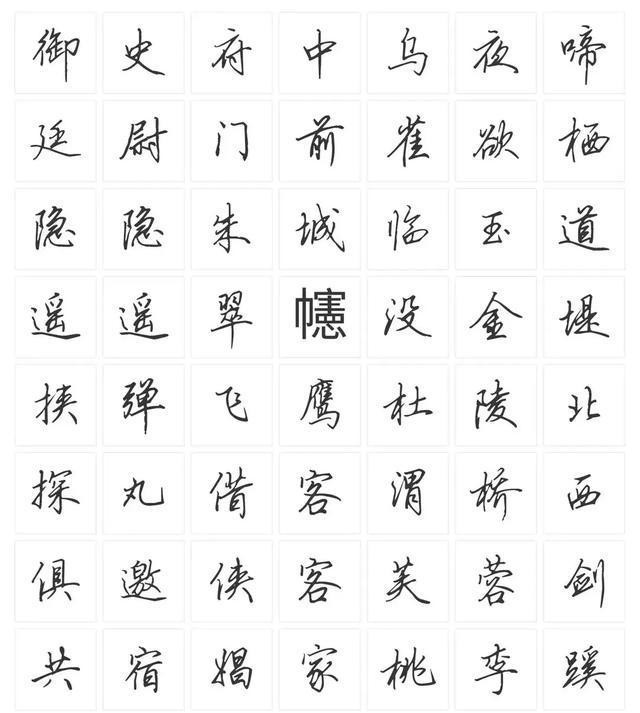 御史府中乌夜啼
廷尉门前雀欲栖
隐隐朱城临玉道
遥遥翠幰没金堤
挟弹飞鹰杜陵北
探丸借客渭桥西
俱邀侠客芙蓉剑
共宿娼家桃李蹊